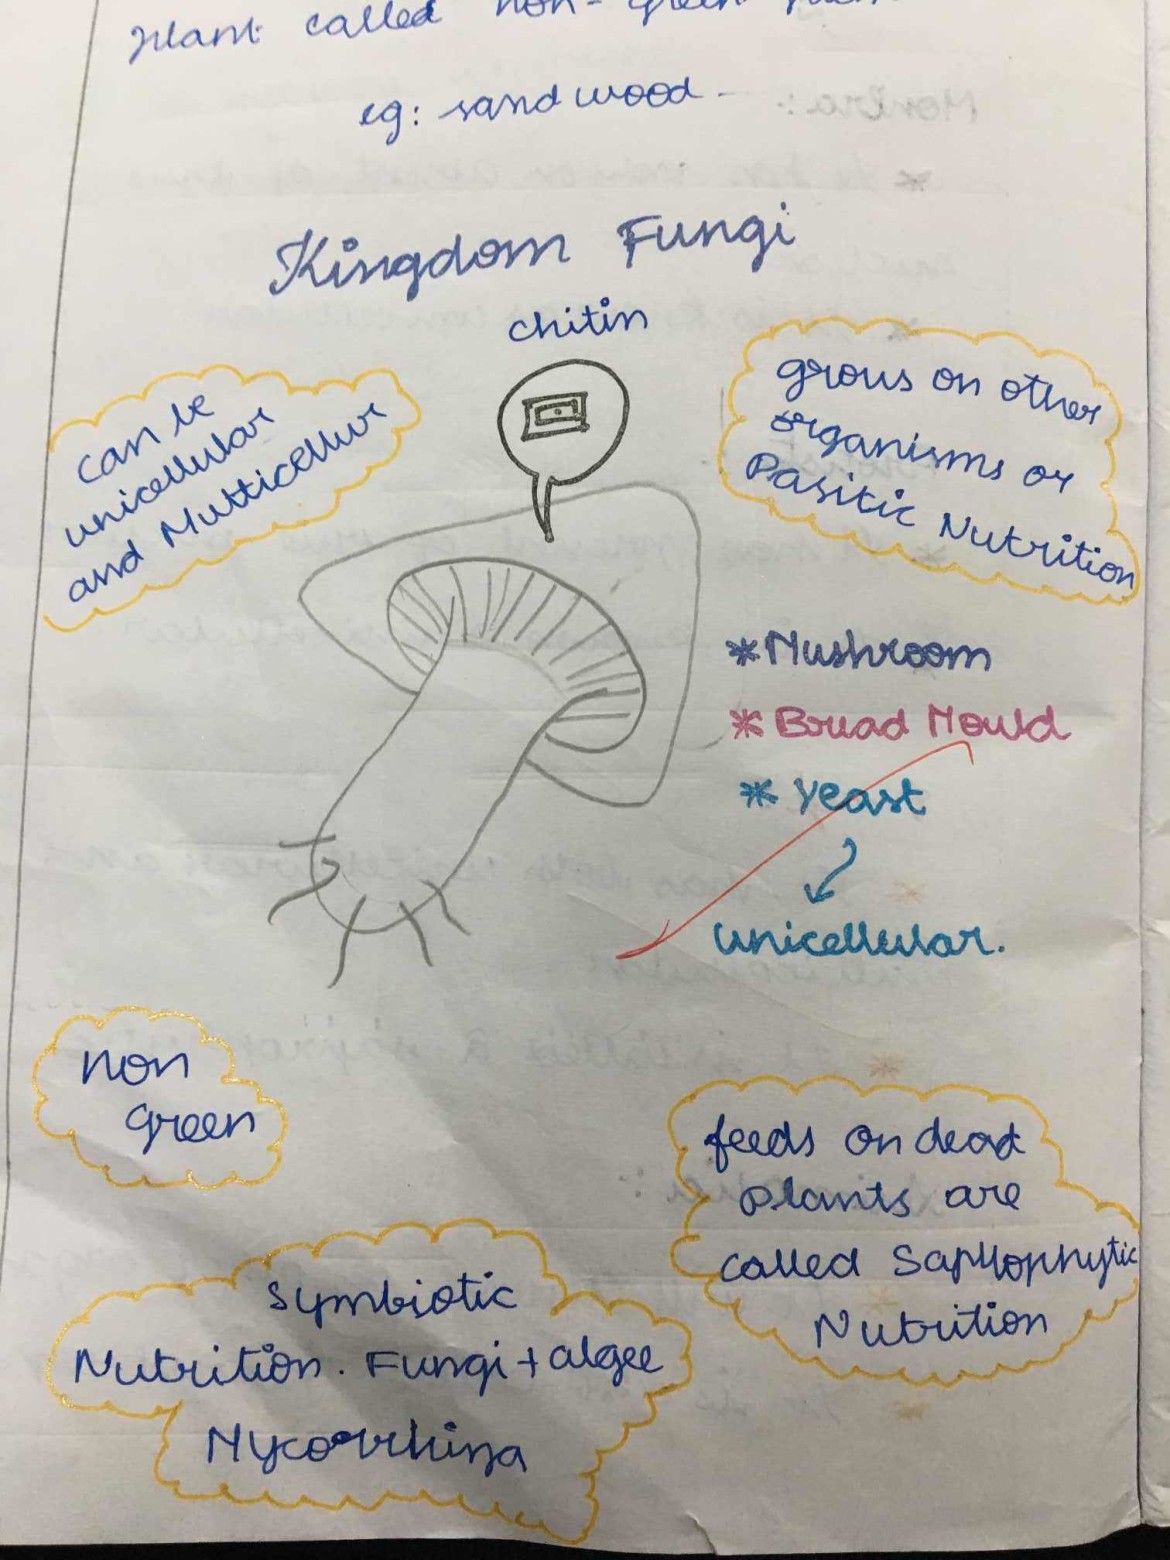 plant called non-green
eg: sandwood
Kingdom Fungi
chitin
can be
unicellular
and Multicellur
grous on other
organisms or
Pasitic Nutrition
*Mushroom
*Bread Mould
*Yeast
unicellular.
non
green
feeds on dead
plants are
called Saprophytic
Nutrition
symbiotic
Nutrition. Fungi+algee
Mycorrhiza